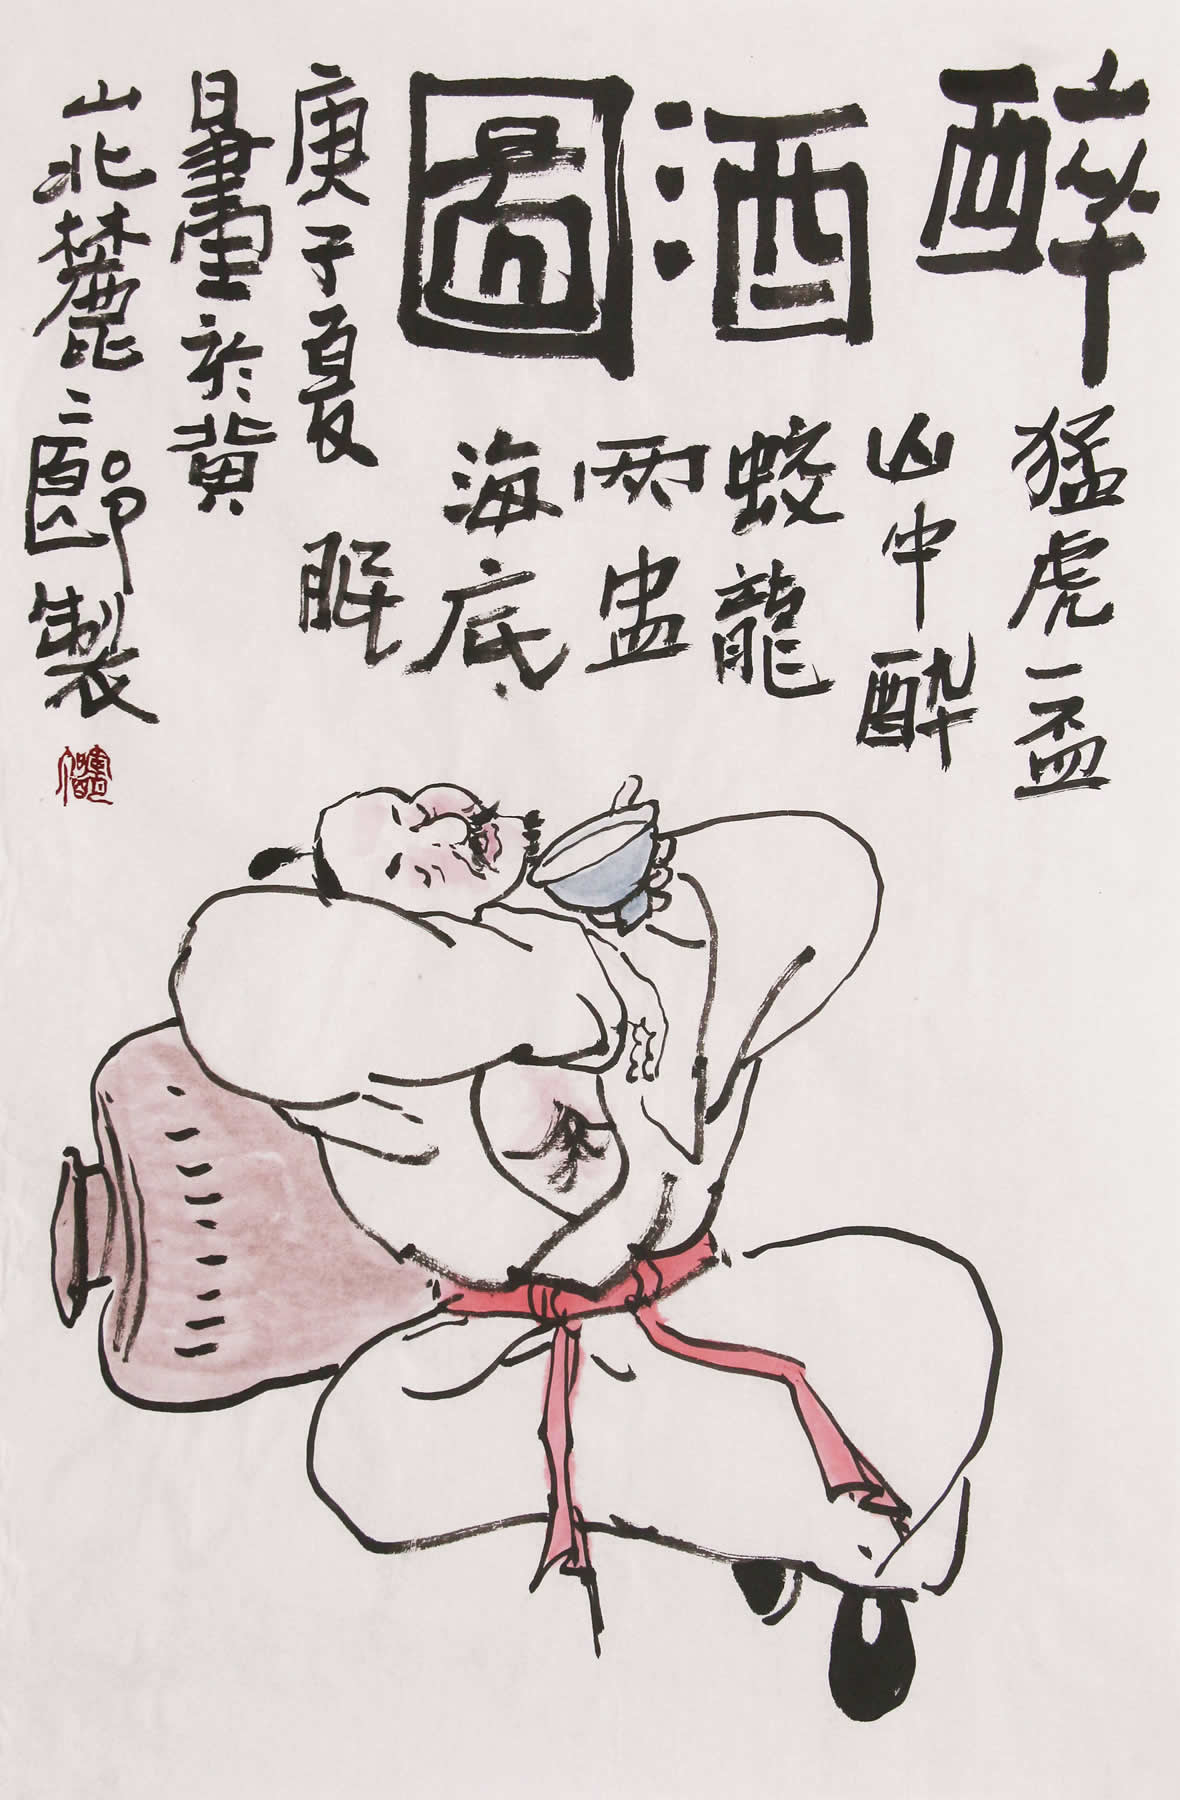 醉酒圖
猛虎一盃
山中酔
蛟龍
兩盅
海底
眠
庚子夏
日畫於黄
山北麓二郎製